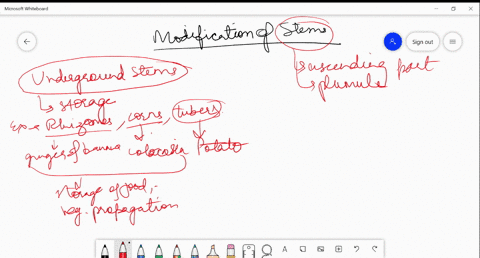 Microsoft Whiteboard
Sign out
Modification of Stems
ascending part
plumule
Underground Stems
storage
Rhizomes, corms, tubers
ginger of banana colocasia Potato
storage of food,
veg. propagation